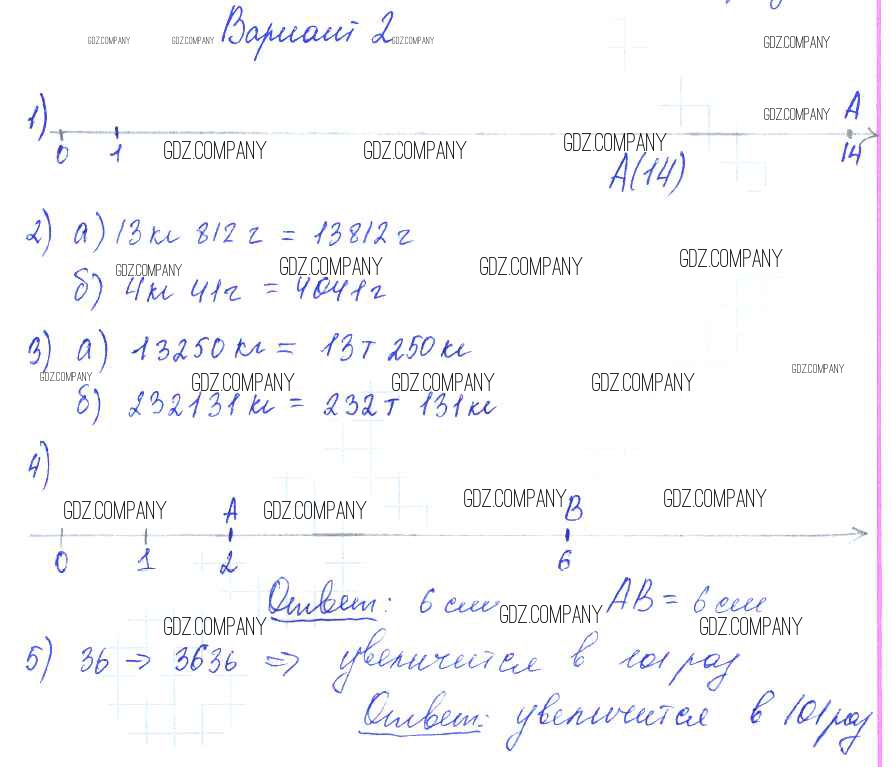 Вариант 2
GDZ.COMPANY GDZ.COMPANY GDZ.COMPANY GDZ.COMPANY
GDZ.COMPANY
1) A
0 1 14
GDZ.COMPANY GDZ.COMPANY GDZ.COMPANY
A(14)
2) а) 13кг 812г = 13812г
GDZ.COMPANY GDZ.COMPANY GDZ.COMPANY GDZ.COMPANY
б) 4кг 41г = 4041г
3) а) 13250кг = 13т 250кг
GDZ.COMPANY GDZ.COMPANY GDZ.COMPANY GDZ.COMPANY GDZ.COMPANY
б) 232131кг = 232т 131кг
4)
GDZ.COMPANY GDZ.COMPANY GDZ.COMPANY GDZ.COMPANY
A B
0 1 2 6
Ответ: 6см AB = 6см
GDZ.COMPANY GDZ.COMPANY GDZ.COMPANY
5) 36 → 3636 => увеличится в 101 раз
Ответ: увеличится в 101 раз